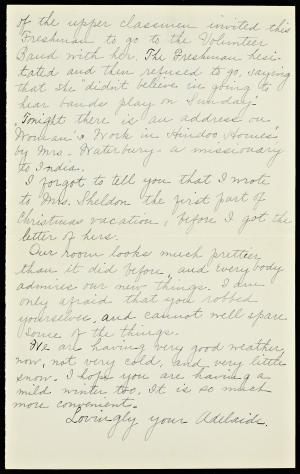 of the upper classmen invited this
Freshman to go to the Volunteer
Band with her. The Freshman hesi-
tated and then refused to go, saying
that she didn't believe in going to
hear bands play on Sunday!
Tonight there is an address on
"Woman's Work in Hindoo Homes"
by Mrs. Waterbury - a missionary
to India.
I forgot to tell you that I wrote
to Mrs. Sheldon the first part of
Christmas vacation, before I got the
letter of hers.
Our room looks much prettier
than it did before, and everybody
admires our new things. I am
only afraid that you robbed
yourselves, and cannot well spare
some of the things.
We are having very good weather
now, not very cold, and very little
snow. I hope you are having a
mild winter, too. It is so much
more convenient.
Lovingly your Adelaide.